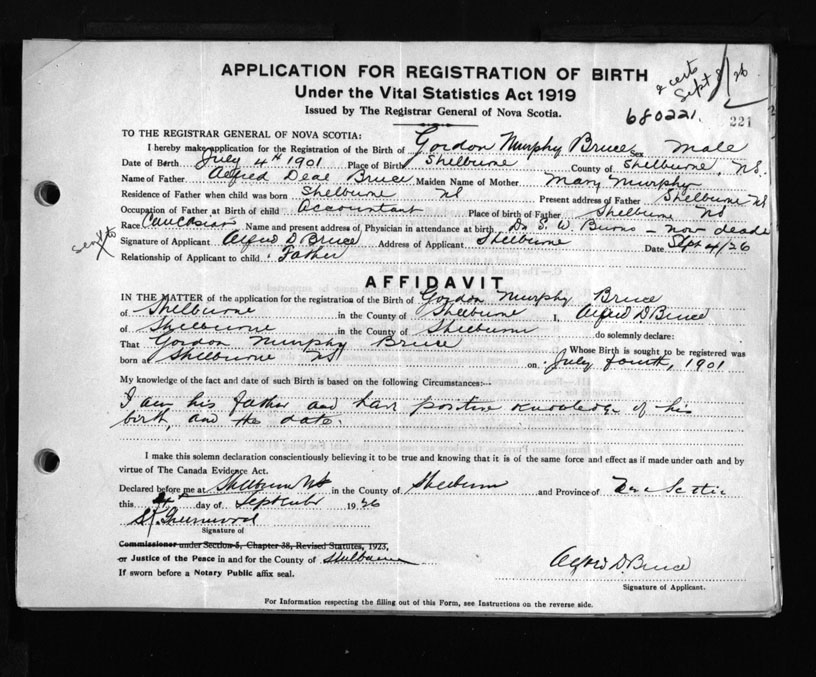 APPLICATION FOR REGISTRATION OF BIRTH
Under the Vital Statistics Act 1919
Issued by The Registrar General of Nova Scotia.
2 certs
Sept 8/26
680221.
221
TO THE REGISTRAR GENERAL OF NOVA SCOTIA:
I hereby make application for the Registration of the Birth of Gordon Murphy Bruce Sex Male
Date of Birth July 4th 1901 Place of Birth Shelburne County of Shelburne, NS.
Name of Father Alfred Deal Bruce Maiden Name of Mother Mary Murphy
Residence of Father when child was born Shelburne NS Present address of Father Shelburne NS
Occupation of Father at Birth of child Accountant Place of birth of Father Shelburne NS
Race Caucasian Name and present address of Physician in attendance at birth Dr S. W. Burns - now dead
Signature of Applicant Alfred D Bruce Address of Applicant Shelburne Date Sept 4/26
Relationship of Applicant to child Father
AFFIDAVIT
IN THE MATTER of the application for the registration of the Birth of Gordon Murphy Bruce
of Shelburne in the County of Shelburne I, Alfred D. Bruce
of Shelburne in the County of Shelburne do solemnly declare:
That Gordon Murphy Bruce Whose Birth is sought to be registered was
born at Shelburne NS on July fourth, 1901
My knowledge of the fact and date of such Birth is based on the following Circumstances:--
I am his father and have positive knowledge of his
birth, and the date.
I make this solemn declaration conscientiously believing it to be true and knowing that it is of the same force and effect as if made under oath and by
virtue of The Canada Evidence Act.
Declared before me at Shelburne NS in the County of Shelburne and Province of Nova Scotia
this 4th day of September 1926
Greenwood
Signature of
Commissioner under Section 5, Chapter 38, Revised Statutes, 1923,
or Justice of the Peace in and for the County of Shelburne
If sworn before a Notary Public affix seal.
Alfred D. Bruce
Signature of Applicant.
For Information respecting the filling out of this Form, see Instructions on the reverse side.